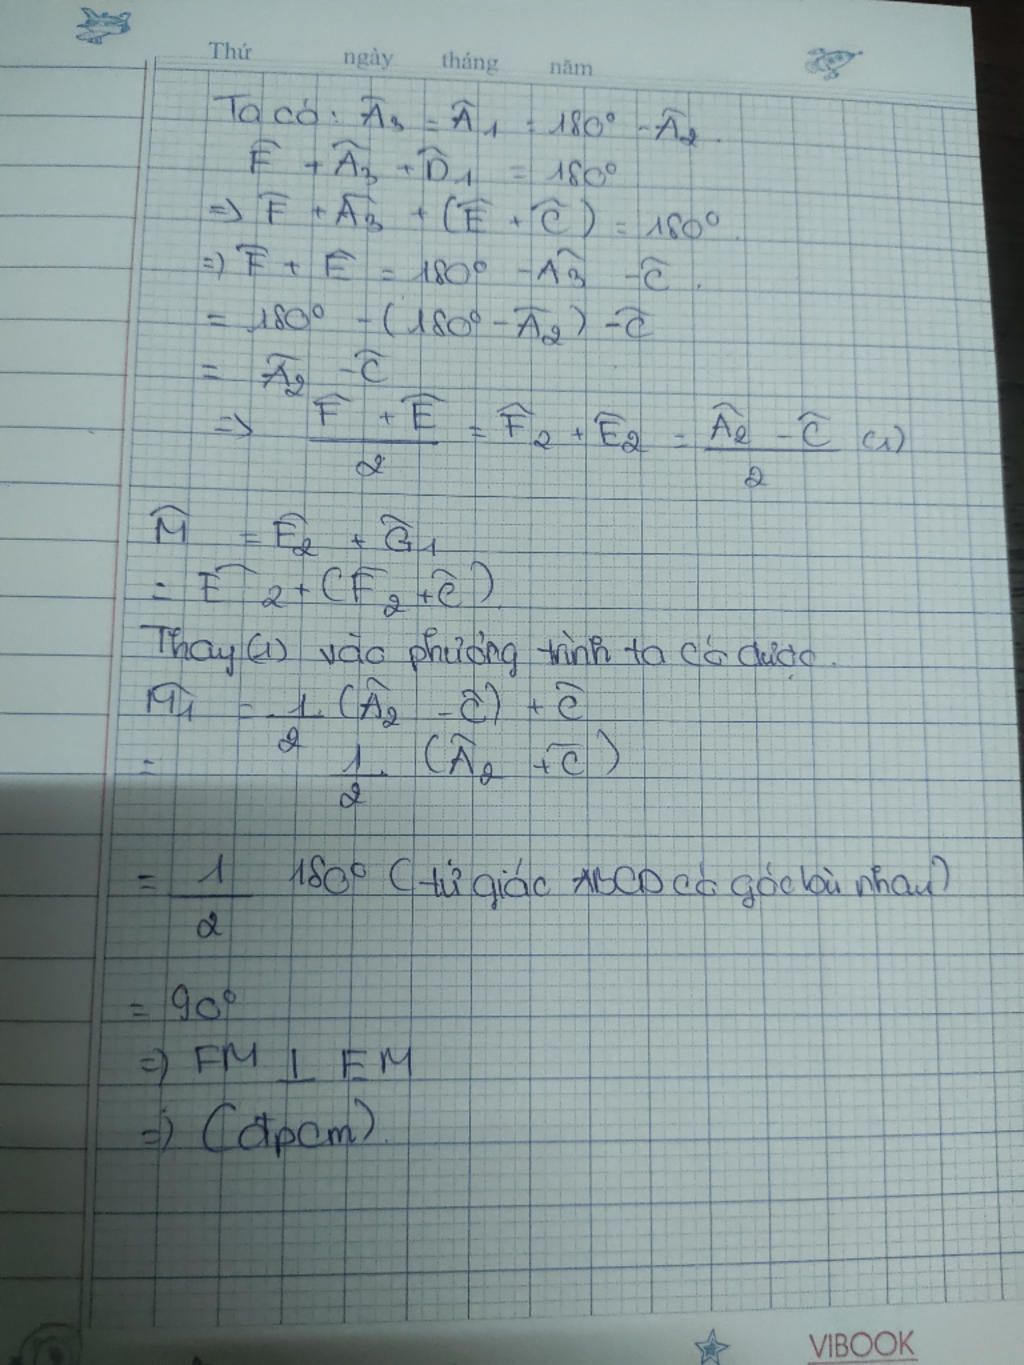 Thứ ngày tháng năm
Ta có: Â₃ = Â₁ = 180° - Â₂.
F̂ + Â₃ + D̂₁ = 180°
=> F̂ + Â₃ + (Ê + Ĉ) = 180°.
=> F̂ + Ê = 180° - Â₃ - Ĉ.
= 180° - (180° - Â₂) - Ĉ
= Â₂ - Ĉ
=> (F̂ + Ê)/2 = F̂₂ + Ê₂ = (Â₂ - Ĉ)/2 (1)
M̂ = Ê₂ + Ĝ₁
= Ê₂ + (F̂₂ + Ĉ)
Thay (1) vào phương trình ta có được.
M̂₁ = 1/2 (Â₂ - Ĉ) + Ĉ
= 1/2 . (Â₂ + Ĉ)
= 1/2 180° (tứ giác ABCD có góc bù nhau)
= 90°
=> FM ⊥ EM
=> (đpcm).
VIBOOK